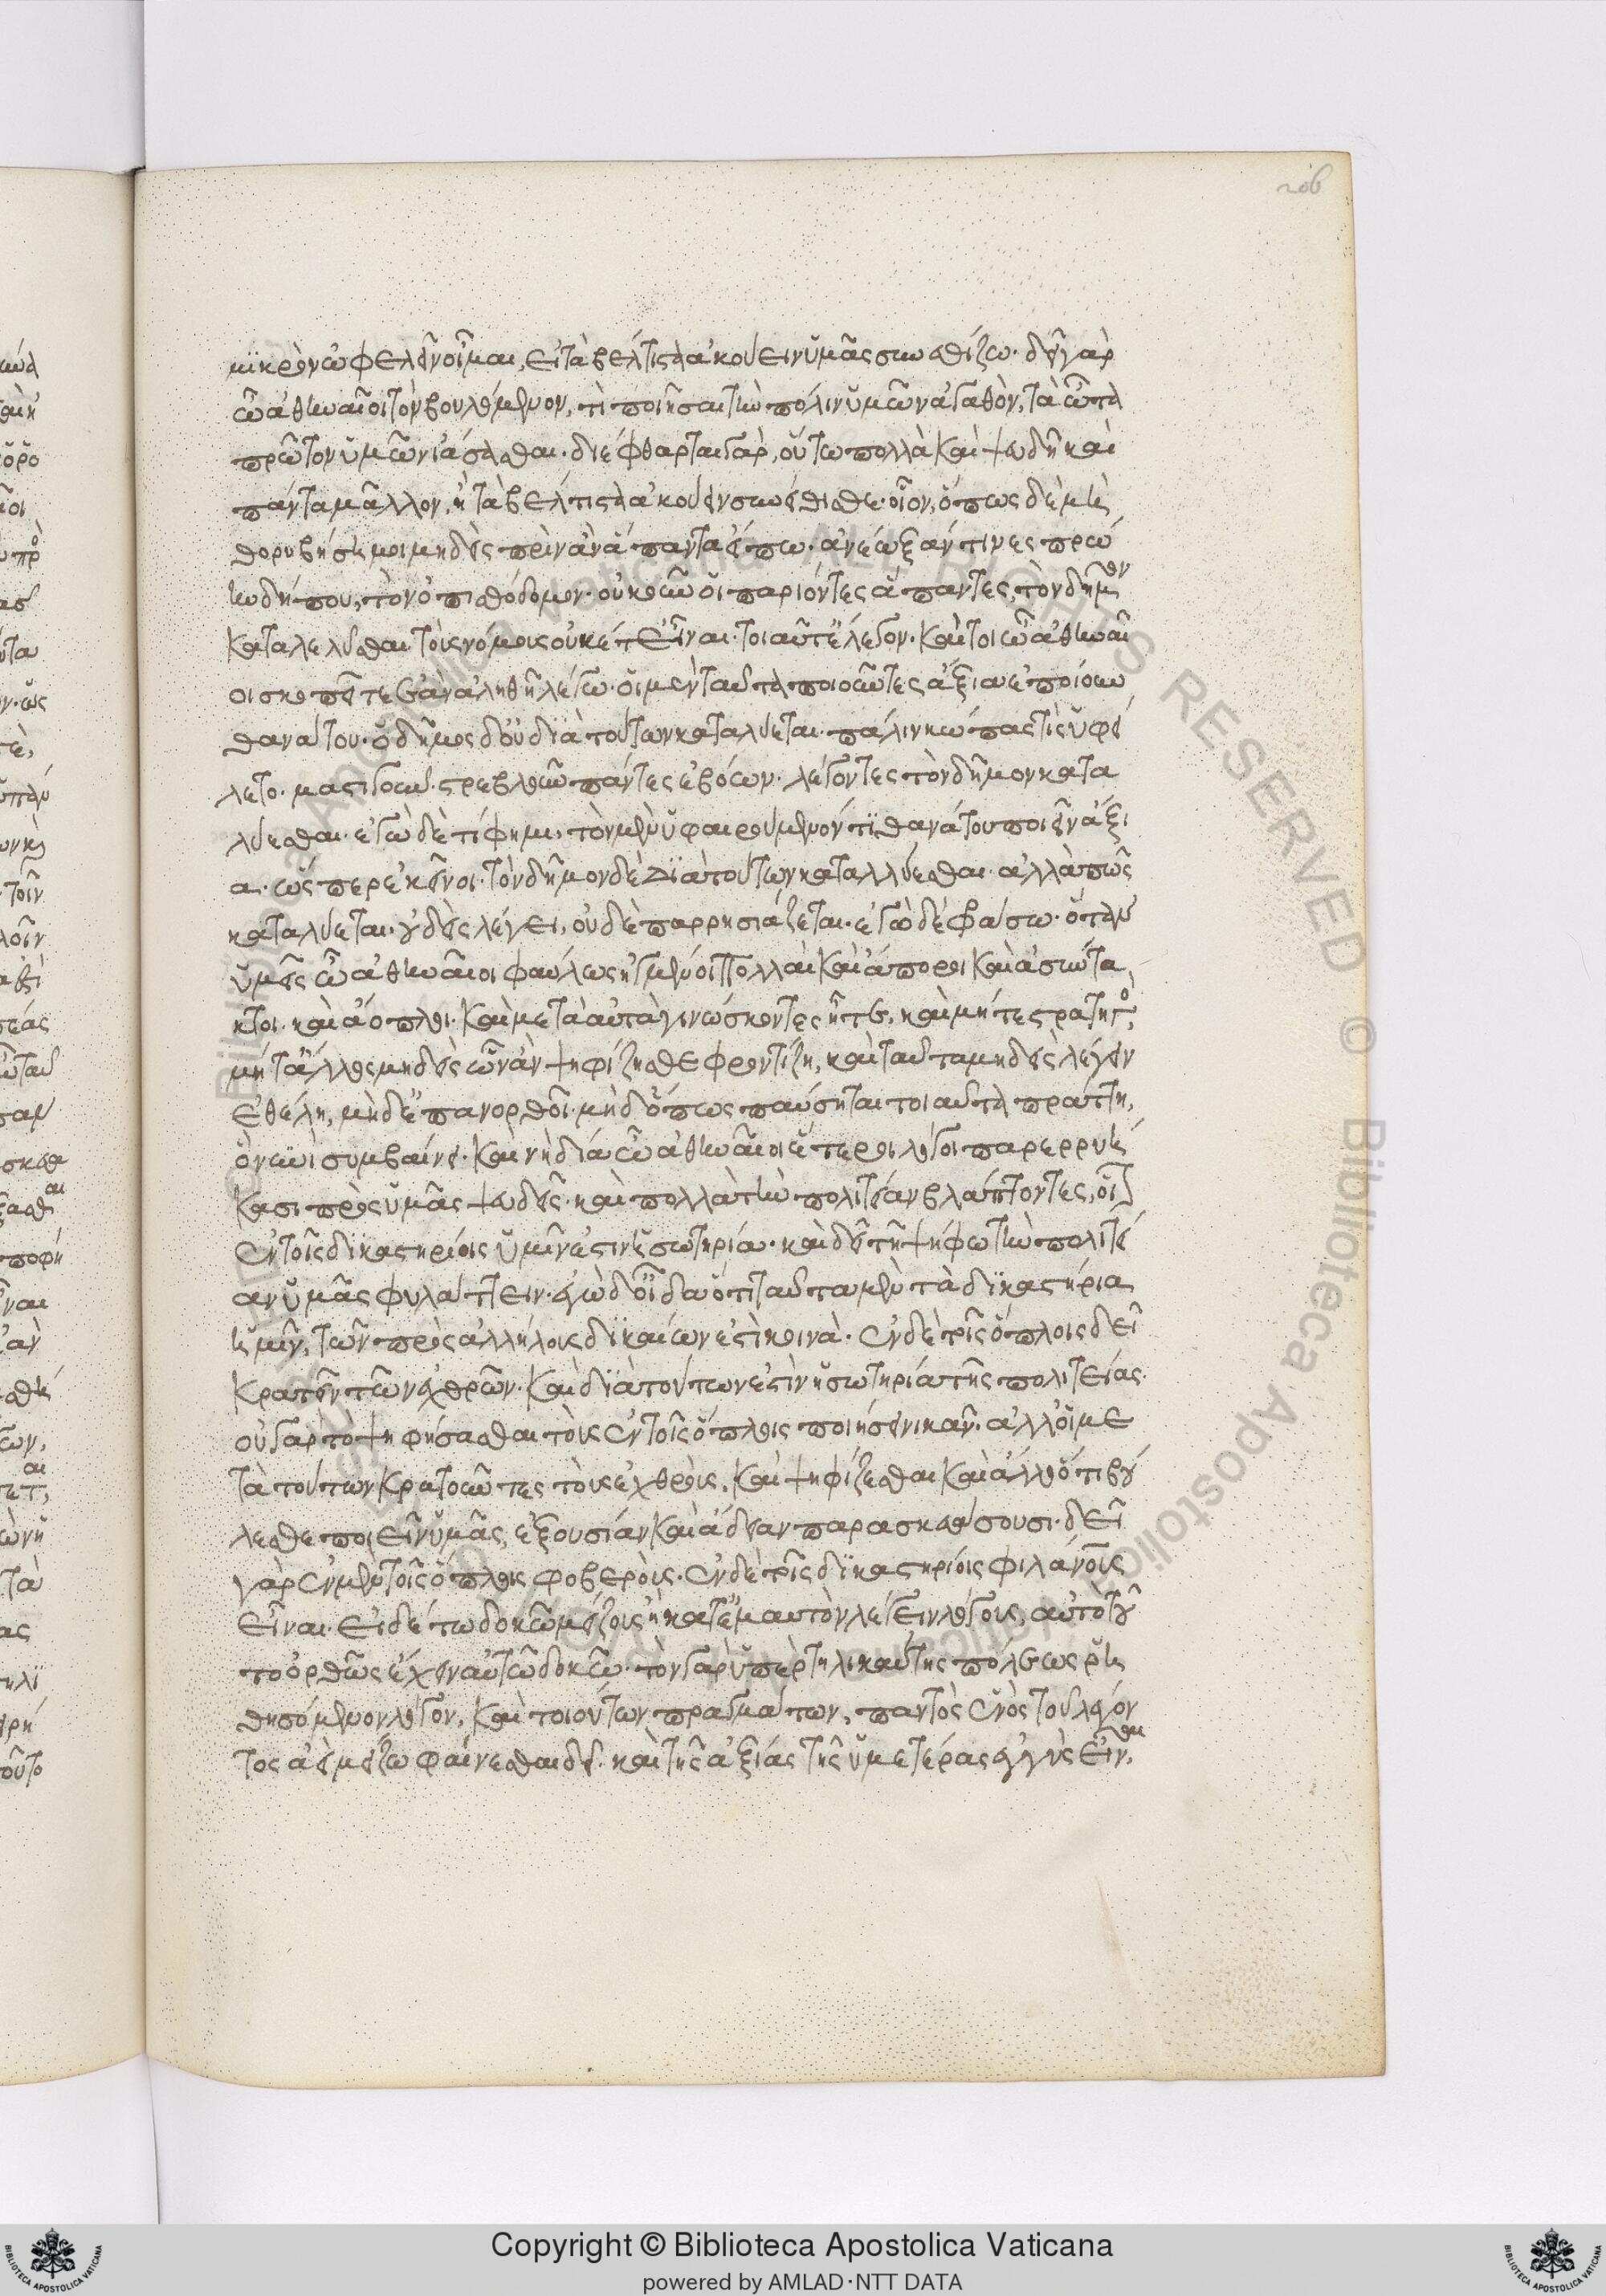 206
μικρὸν ὠφελεῖν οἶμαι, εἰ τὰ βέλτιστα ἀκούειν ὑμᾶς συνεθίζω. δεῖ γὰρ
ὦ ἀθηναῖοι τὸν βουλόμενον, τὶ ποιῆσαι τὴν πόλιν ὑμῶν ἀγαθὸν, τὰ ὦτα
πρῶτον ὑμῶν ἰάσασθαι. διέφθαρται γὰρ, οὕτω πολλὰ καὶ ψευδῆ καὶ
πάντα μᾶλλον, ἢ τὰ βέλτιστα ἀκούειν συνείθισθε. οἷον, ὅπως δὲ μὴ
θορυβήσῃ μοι μηδεὶς πρὶν ἂν ἅπαντα εἴπω. ἀνέῳξάν τινες πρώ
ην δήπου, τὸν ὀπισθόδομον. οὐκοῦν οἱ παριόντες ἅπαντες, τὸν δῆμον
καταλελύσθαι τοὺς νόμους οὐκέτ' εἶναι. τοιαῦτ' ἔλεγον. καίτοι ὦ ἀθηναῖ
οι σκοπεῖτε ἐὰν ἀληθῆ λέγω. οἱ μὲν ταῦτα ποιοῦντες ἄξια ἐποίουν
θανάτου. ὁ δῆμος δ' οὐ διὰ τούτων καταλύεται. πάλιν κώπας τὶς ὑφεί
λετο. μαστιγοῦν. στρεβλοῦν πάντες ἐβόων. λέγοντες τὸν δῆμον κατα
λύεσθαι. ἐγὼ δὲ τί φημι, τὸν μὲν ὑφαιρούμενόν τι θανάτου ποιεῖν ἄξι
α. ὥσπερ ἐκεῖνοι. τὸν δῆμον δὲ διὰ τούτων καταλλύεσθαι. ἀλλὰ πῶς
καταλύεται. οὐδεὶς λέγει, οὐδὲ παρρησιάζεται. ἐγὼ δὲ φράσω. ὅταν
ὑμεῖς ὦ ἀθηναῖοι φαύλως ἠγμένοι πολλοὶ καὶ ἄποροι καὶ ἀσύντα
κτοι. καὶ ἄοπλοι. καὶ μὴ ταὐτὰ γινώσκοντες ἦτε, καὶ μήτε στρατηγὸς,
μήτ' ἄλλος μηδεὶς ὧν ἂν ψηφίζησθε φροντίζῃ, καὶ ταῦτα μηδεὶς λέγειν
ἐθέλῃ, μηδ' ἐπανορθοῖ. μηδ' ὅπως παύσηται τοιαῦτα πράττῃ,
ὃ νῦν συμβαίνει. καὶ νὴ δία ὦ ἀθηναῖοι ἕτεροι λόγοι παρερρυή
κασι πρὸς ὑμᾶς ψευδεῖς. καὶ πολλὰ τὴν πολιτείαν βλάπτοντες, οἷον
ἐν τοῖς δικαστηρίοις ὑμῖν ἐστιν ἡ σωτηρία. καὶ δεῖ τῇ ψήφῳ τὴν πολιτεί
αν ὑμᾶς φυλάττειν. ἐγὼ δ' οἶδα ὅτι ταῦτα μὲν τὰ δικαστήρια
ὑμῖν, τῶν πρὸς ἀλλήλους δικαίων ἐστὶ κοινά. ἐν δὲ τοῖς ὅπλοις δεῖ
κρατεῖν τῶν ἐχθρῶν. καὶ διὰ τούτων ἐστὶν ἡ σωτηρία τῆς πολιτείας.
οὐ γὰρ τὸ ψηφίσασθαι τοὺς ἐν τοῖς ὅπλοις ποιήσει νικᾶν. ἀλλ' οἱ με
τὰ τούτων κρατοῦντες τοὺς ἐχθροὺς, καὶ ψηφίζεσθαι καὶ ἄλλο ὅτι βού
λεσθε ποιεῖν ὑμᾶς, ἐξουσίαν καὶ ἄδειαν παρασκευάσουσι. δεῖ
γὰρ ἐν μὲν τοῖς ὅπλοις φοβεροὺς. ἐν δὲ τοῖς δικαστηρίοις φιλανούς
εἶναι. εἰ δέ τῳ δοκῶ μείζους ἢ κατ' ἐμαυτὸν λέγειν λόγους, αὐτὸ τοῦ
το ὀρθῶς ἔχειν αὐτῶ δοκῶ. τὸν γὰρ ὑπὲρ τηλικαύτης πόλεως ῥη
θησόμενον λόγον, καὶ τοιούτων πραγμάτων, παντὸς ἑνὸς τοῦ λέγον
τος ἀεὶ μείζω φαίνεσθαι δεῖ. καὶ τῆς ἀξίας τῆς ὑμετέρας ἐγγὺς εἶναι,